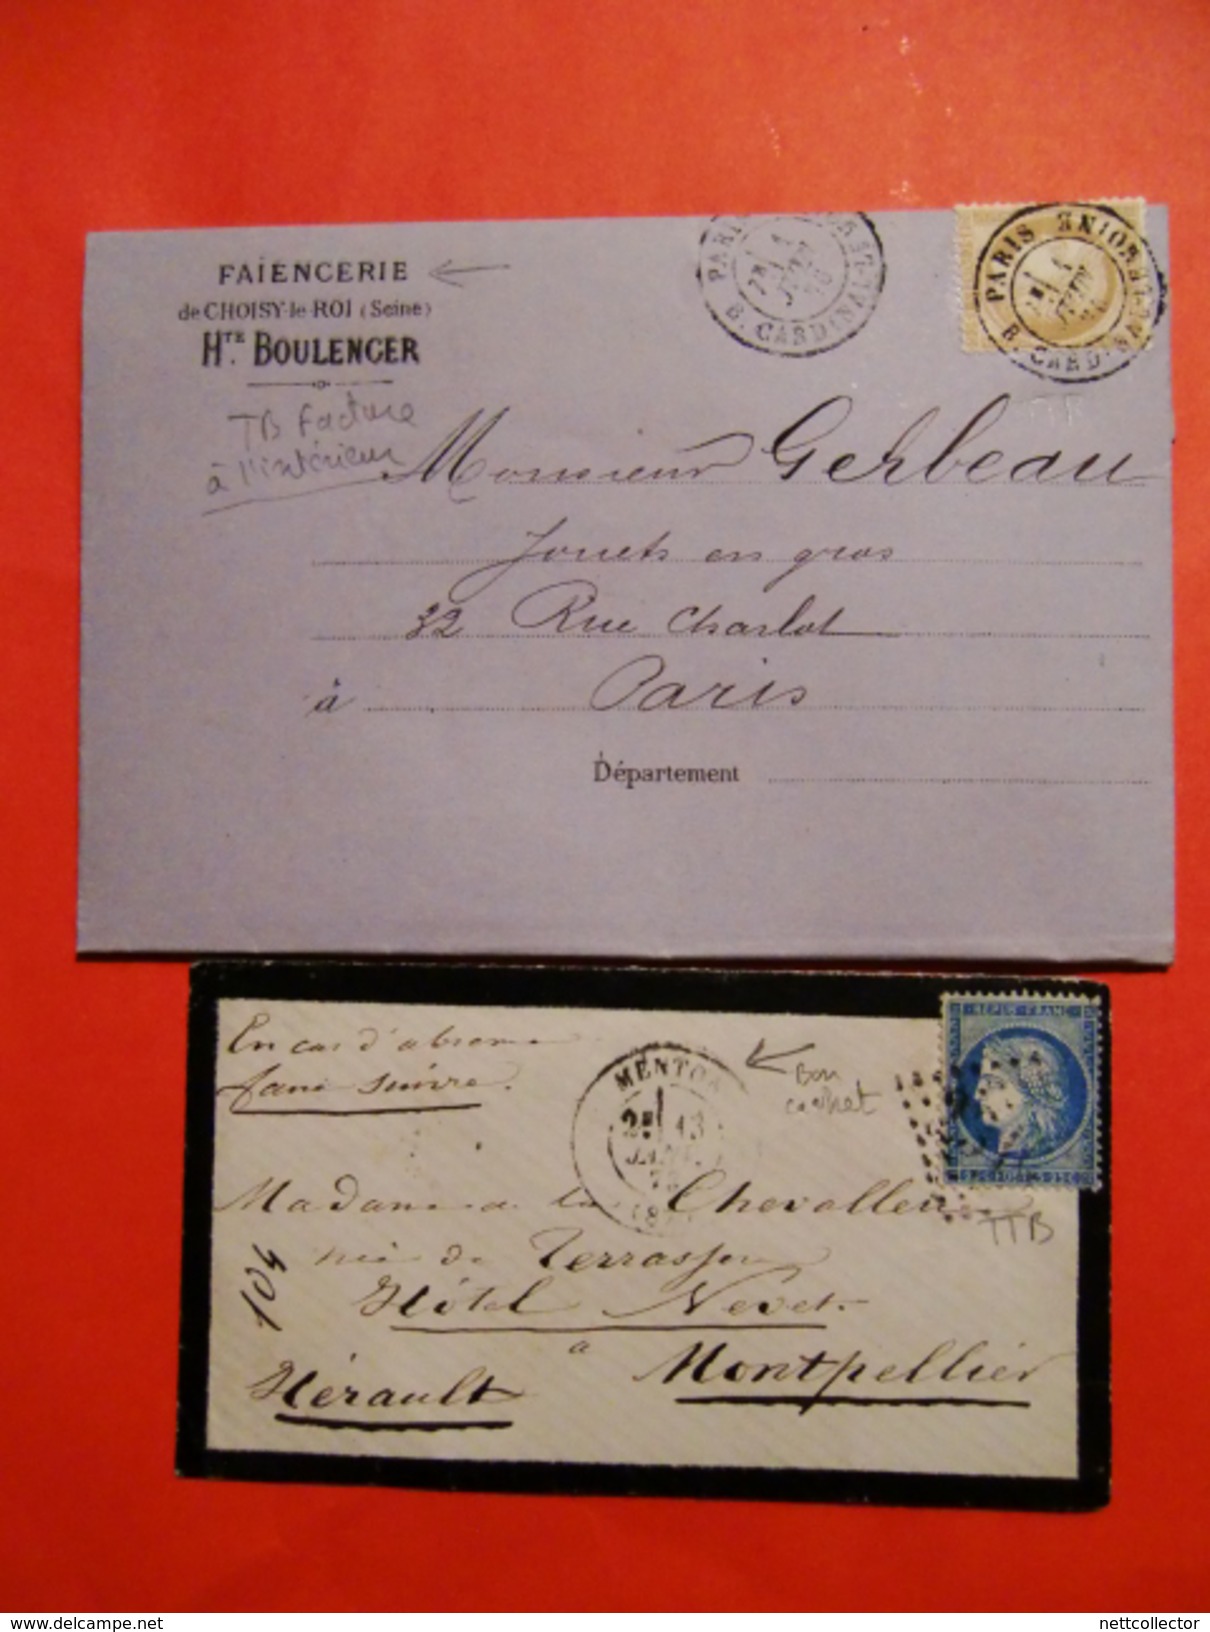 FAÏENCERIE
de CHOISY-le-ROI (Seine)
HTE. BOULENGER
TB facture
à l'intérieur
PARIS
B. CARDINAL-LE
7E 1
JUIN
PARIS
B. CARDINAL-LEMOINE
1
JUIN
Monsieur Gerbeau
Jouets en gros
32 Rue Charlot
à Paris
Département
En cas d'absence
faire suivre.
MENTON
2E 13
JANV.
Bon
cachet
REPUB. FRANC.
TTB
Madame de la Chevallerie
née de Terrasson
Hôtel Nevet
à Montpellier
Hérault
104
www.delcampe.net
nettcollector